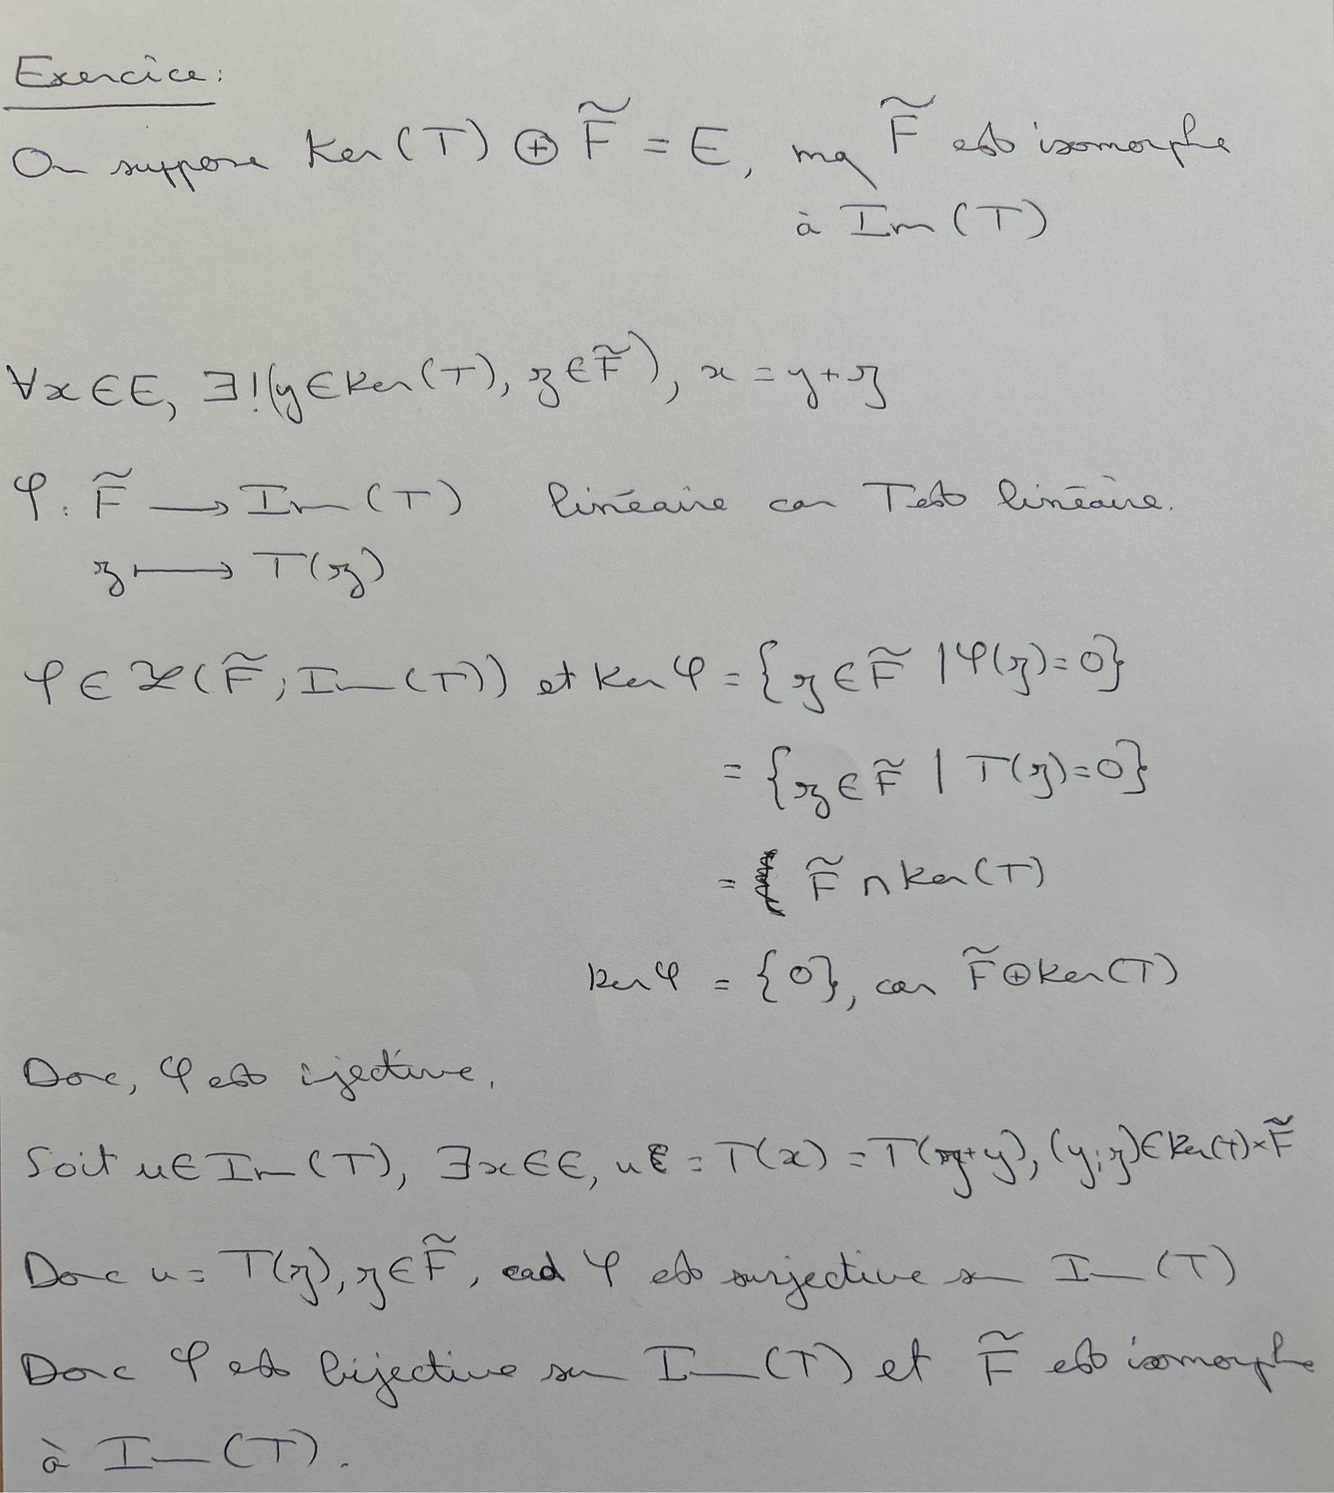 Exercice :
On suppose Ker(T) ⊕ F̃ = E, mq F̃ est isomorphe
à Im(T)
∀x∈E, ∃!(y∈Ker(T), z∈F̃), x = y+z
φ: F̃ → Im(T) linéaire car T est linéaire.
z ↦ T(z)
φ ∈ ℒ(F̃, Im(T)) et Ker φ = {z∈F̃ | φ(z)=0}
= {z∈F̃ | T(z)=0}
= F̃ ∩ Ker(T)
Ker φ = {0}, car F̃⊕Ker(T)
Donc, φ est ijective.
Soit u∈Im(T), ∃x∈E, u = T(x) = T(z+y), (y;z)∈Ker(T)×F̃
Donc u = T(z), z∈F̃, cad φ est surjective sur Im(T)
Donc φ est bijective sur Im(T) et F̃ est isomorphe
à Im(T).